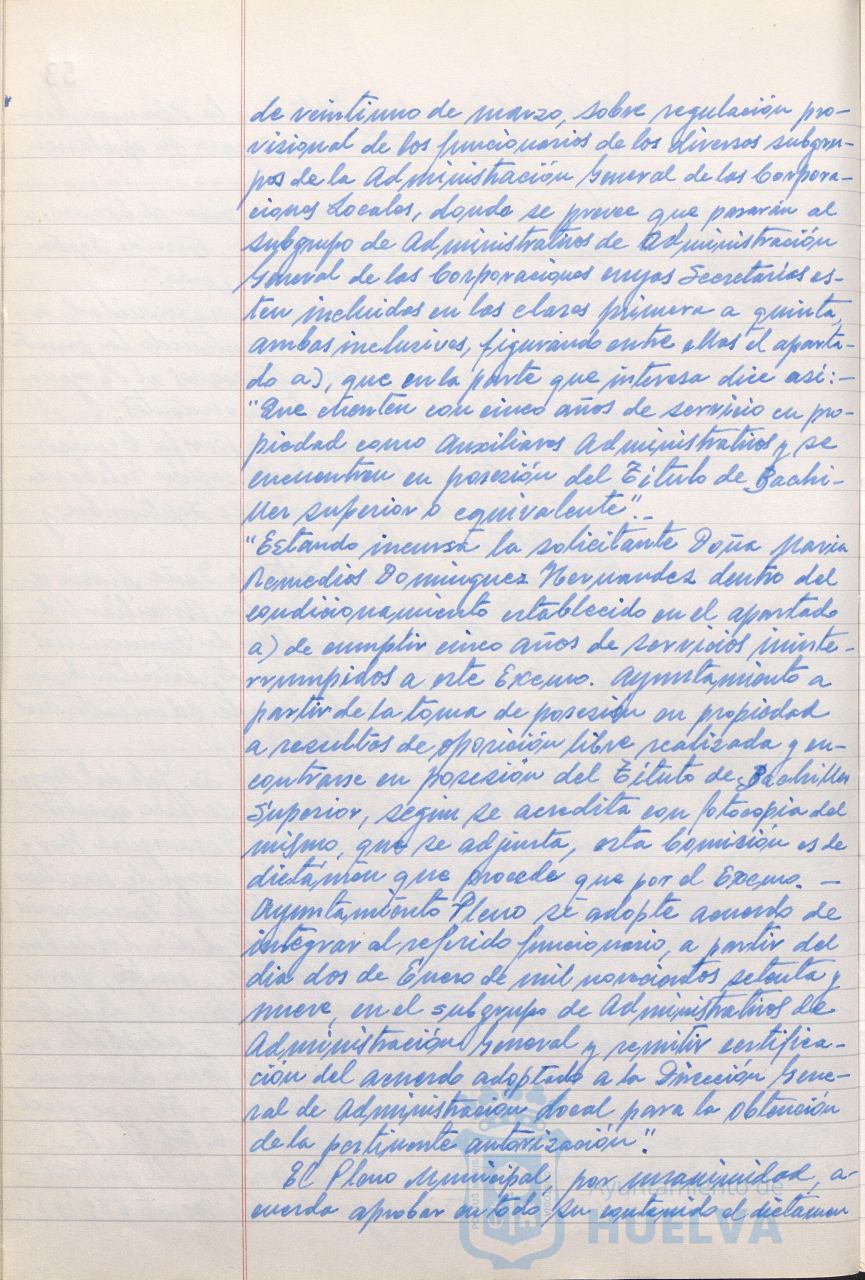 de veintiuno de marzo, sobre regulación pro-
visional de los funcionarios de los diversos subgru-
pos de la Administración General de las Corpora-
ciones Locales, donde se prevee que pasarán al
subgrupo de Administrativos de Administración
General de las Corporaciones cuyas Secretarías es-
ten incluidas en las clases primera a quinta,
ambas inclusives, figurando entre ellas el aparta-
do a), que en la parte que interesa dice así:-
"Que cuenten con cinco años de servicio en pro-
piedad como Auxiliares Administrativos y se
encuentren en posesión del Título de Bachi-
ller superior o equivalente".-
"Estando incursa la solicitante Doña Maria
Remedios Dominguez Hernandez dentro del
condicionamiento establecido en el apartado
a) de cumplir cinco años de servicios ininte-
rrumpidos a este Excmo. Ayuntamiento a
partir de la toma de posesión en propiedad
a resultas de oposición libre realizada y en-
contrarse en posesión del Título de Bachiller
Superior, segun se acredita con fotocopia del
mismo, que se adjunta, esta Comisión es de
dictámen que procede que por el Excmo. -
Ayuntamiento Pleno se adopte acuerdo de
integrar al referido funcionario, a partir del
dia dos de Enero de mil novecientos setenta y
nueve, en el subgrupo de Administrativos de
Administración General y remitir certifica-
ción del acuerdo adoptado a la Dirección Gene-
ral de Administración Local para la obtención
de la pertinente autorización".
El Pleno Municipal, por unanimidad, a-
cuerda aprobar en todo su contenido el dictámen
Ayuntamiento de
HUELVA
53